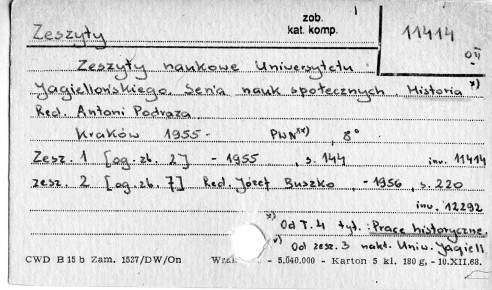 zob.
kat. komp.
11414
Zeszyty
Zeszyty naukowe Uniwersytetu
Jagiellońskiego. Seria nauk społecznych. Historia x)
Red. Antoni Podraza
Kraków 1955- PWN xx), 8°
Zesz. 1 [og. zb. 2] - 1955, s. 144 inw. 11414
zesz. 2 [og. zb. 7] Red. Józef Buszko, - 1956, s. 220
inw. 12292
x) Od T. 4 tyt.: Prace historyczne
x) Od zesz. 3 nakł. Uniw. Jagiell
CWD B 15 b Zam. 1537/DW/On - 5.040.000 - Karton 5 kl. 180 g, - 10.XII.68.